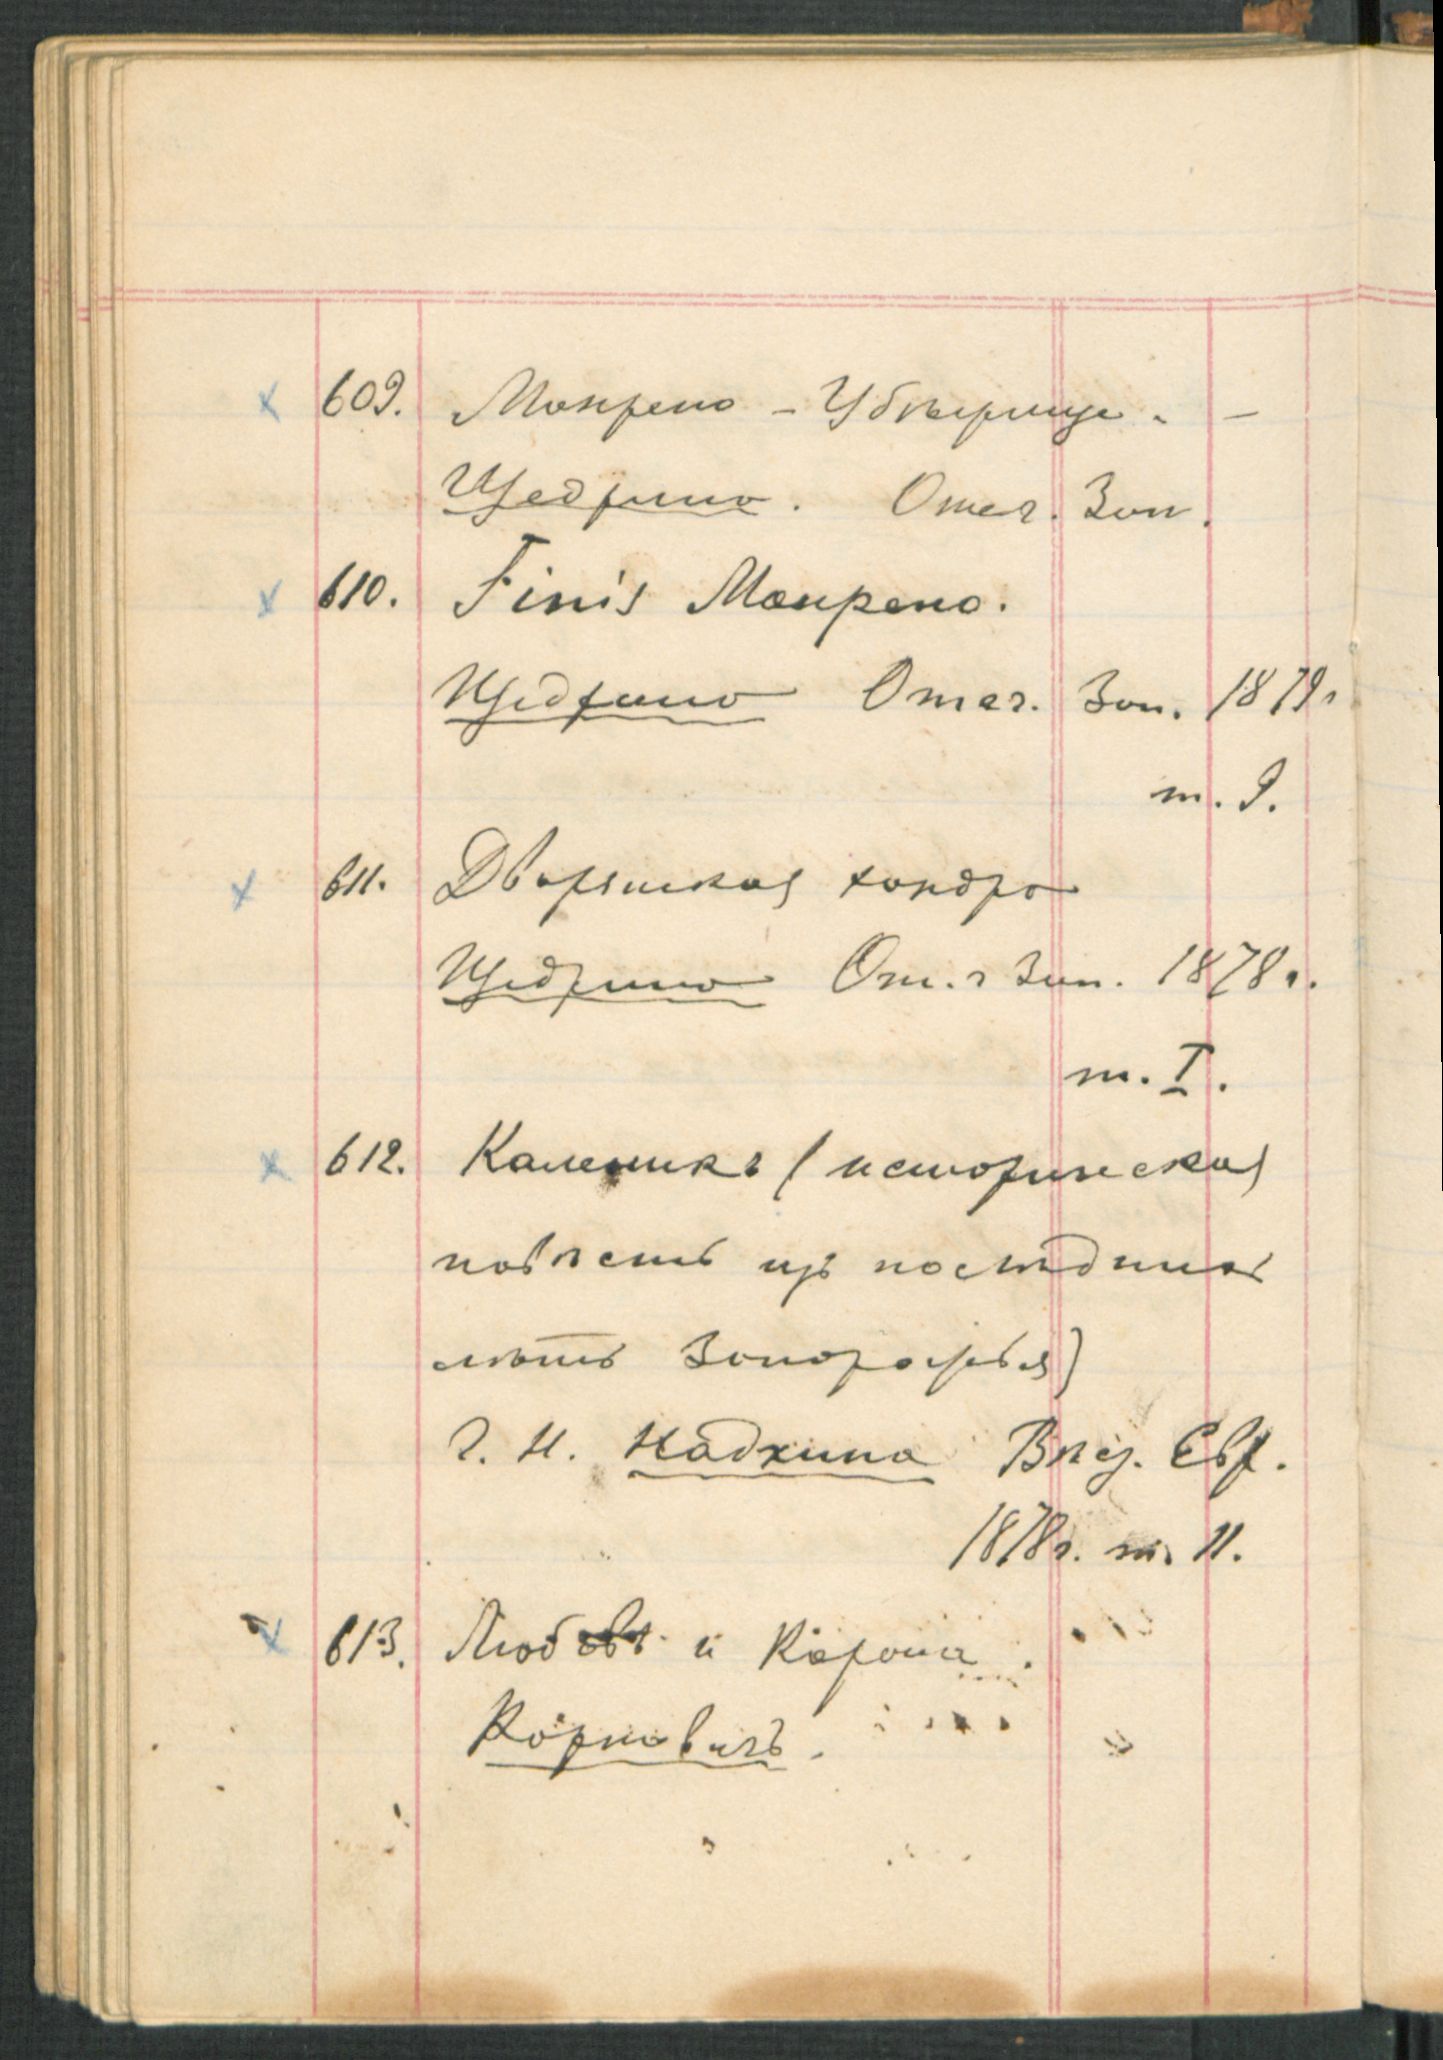 × 609. Монрепо - Убѣжище. -
Щедрина. Отеч. Зап.
× 610. Finis Монрепо.
Щедрина Отеч. Зап. 1879г
т. 9.
× 611. Дворянская хандра
Щедрина Отч. Зап. 1878г.
т. I.
× 612. Каленикъ (историческая
повѣсть изъ послѣднихъ
лѣтъ Запорожья)
Г. Н. Надхина Вѣс. Евр.
1878г. т. 11.
× 613. Любовь и Корона.
Карновичъ.